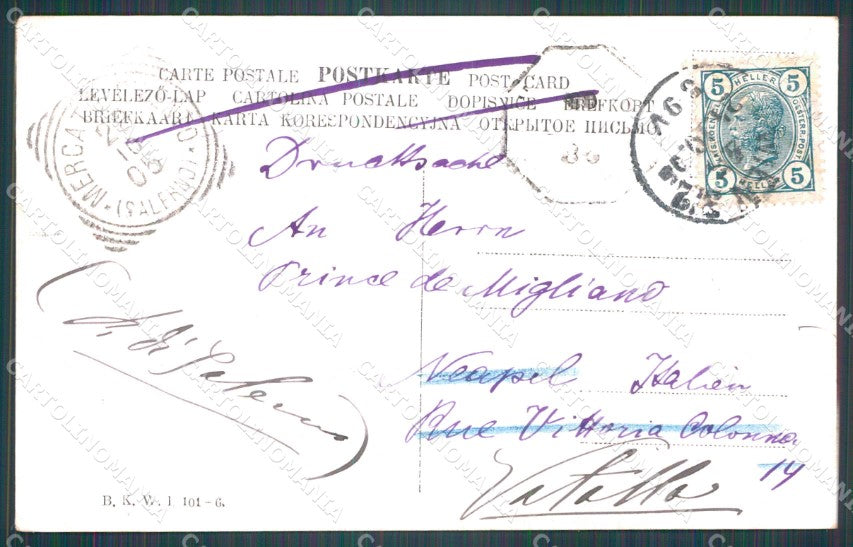 CARTE POSTALE POSTKARTE POST CARD
LEVELEZŐ-LAP CARTOLINA POSTALE DOPISNICE BREFKORT
BRIEFKAART KARTA KORESPONDENCYJNA ОТКРЫТОЕ ПИСЬМО
MERCA
(SALERNO)
05
36
5 HELLER 5
5 HELLER 5
Drucksache
An Herrn
Prince de Migliano
Neapel Italien
Rue Vittoria Colonna
14
(d. di Salerno)
B. K. W. I 101-6.
CARTOLINOMANIA